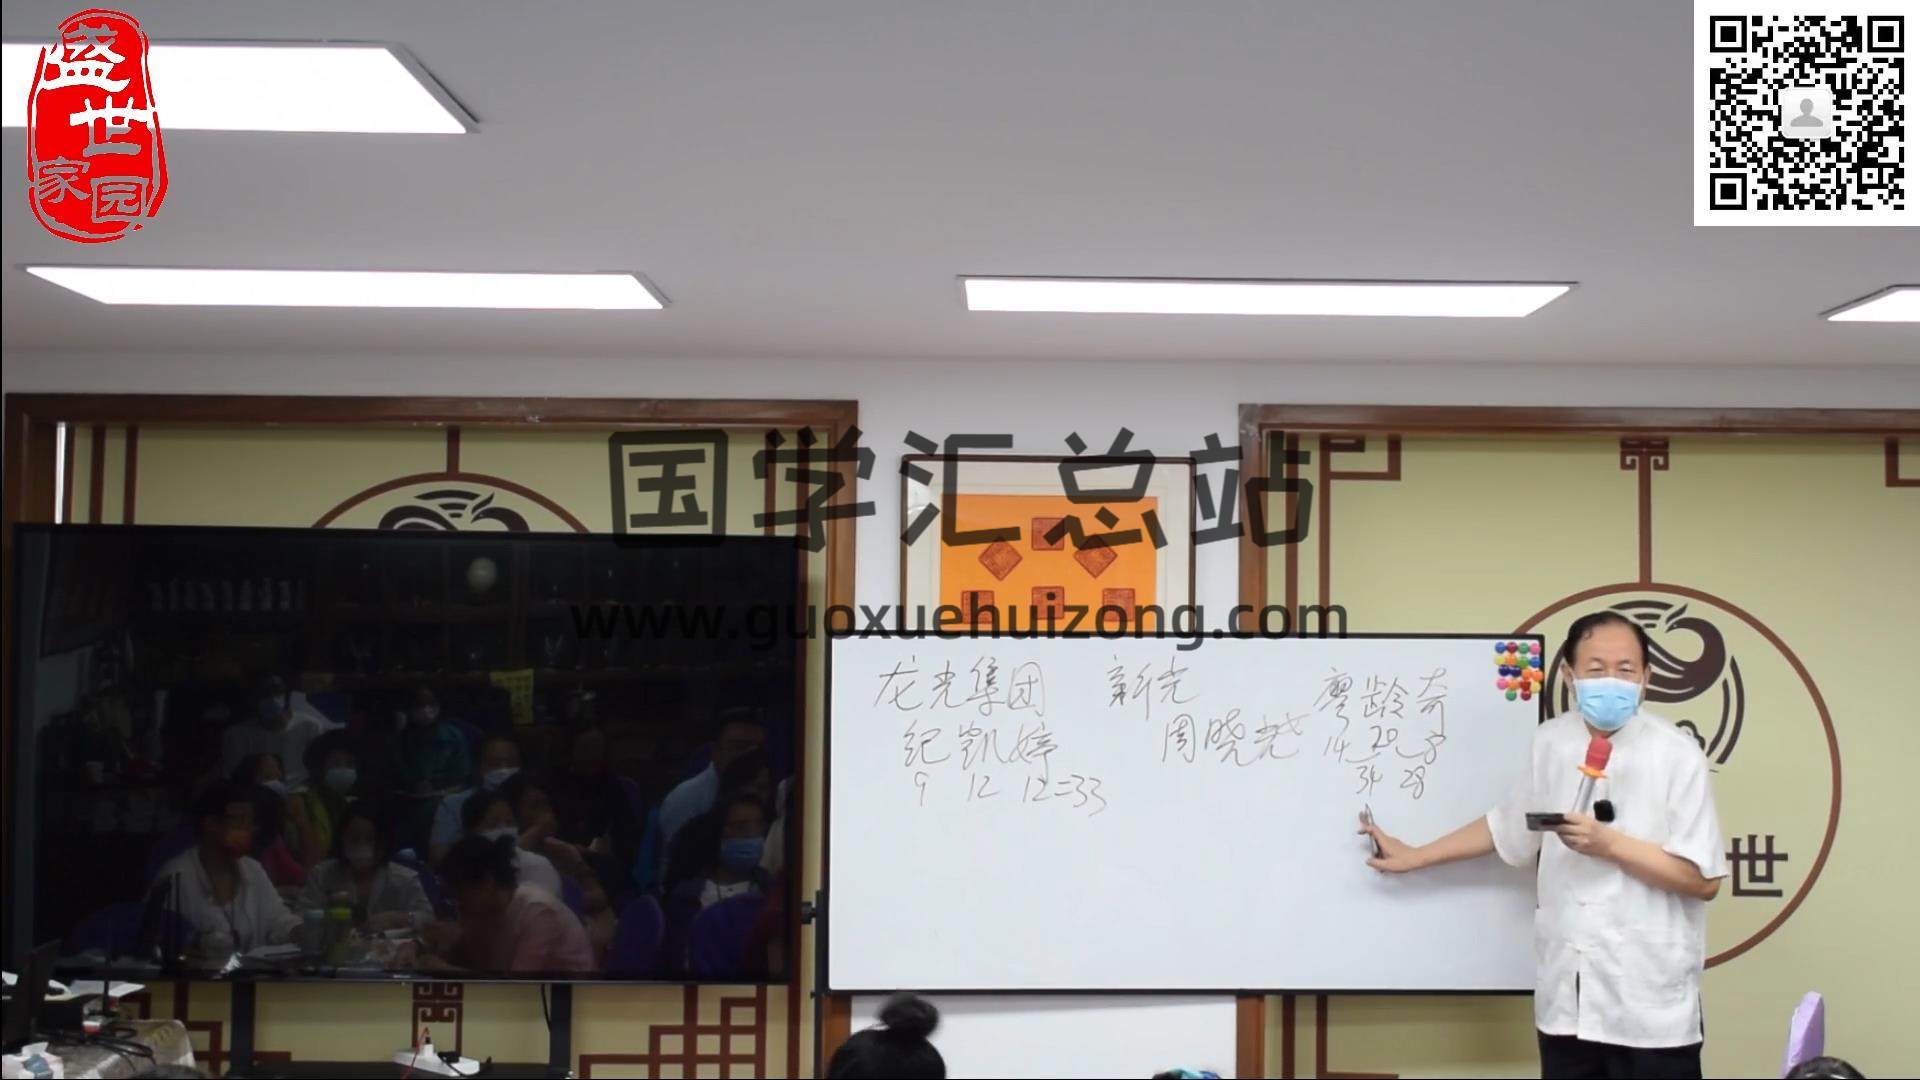 盛世
家园
国学汇总站
www.guoxuehuizong.com
龙光集团 新光 廖龄奇
纪凯婷 周晓光 14 20 8
9 12 12=33 34 28
世